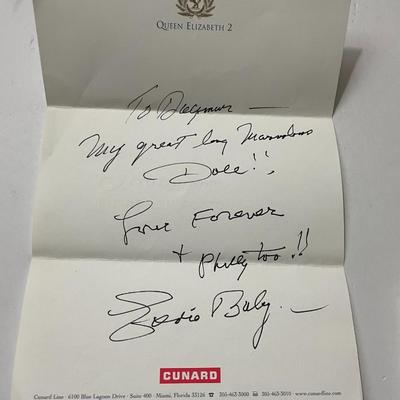 QUEEN ELIZABETH 2
To
My great long Marvelous
Love Forever
+ Philly too!!
Baby —
CUNARD
Cunard Line · 6100 Blue Lagoon Drive · Suite 400 · Miami, Florida 33126 ☎ 305-463-3000 305-463-3010 · www.cunardline.com